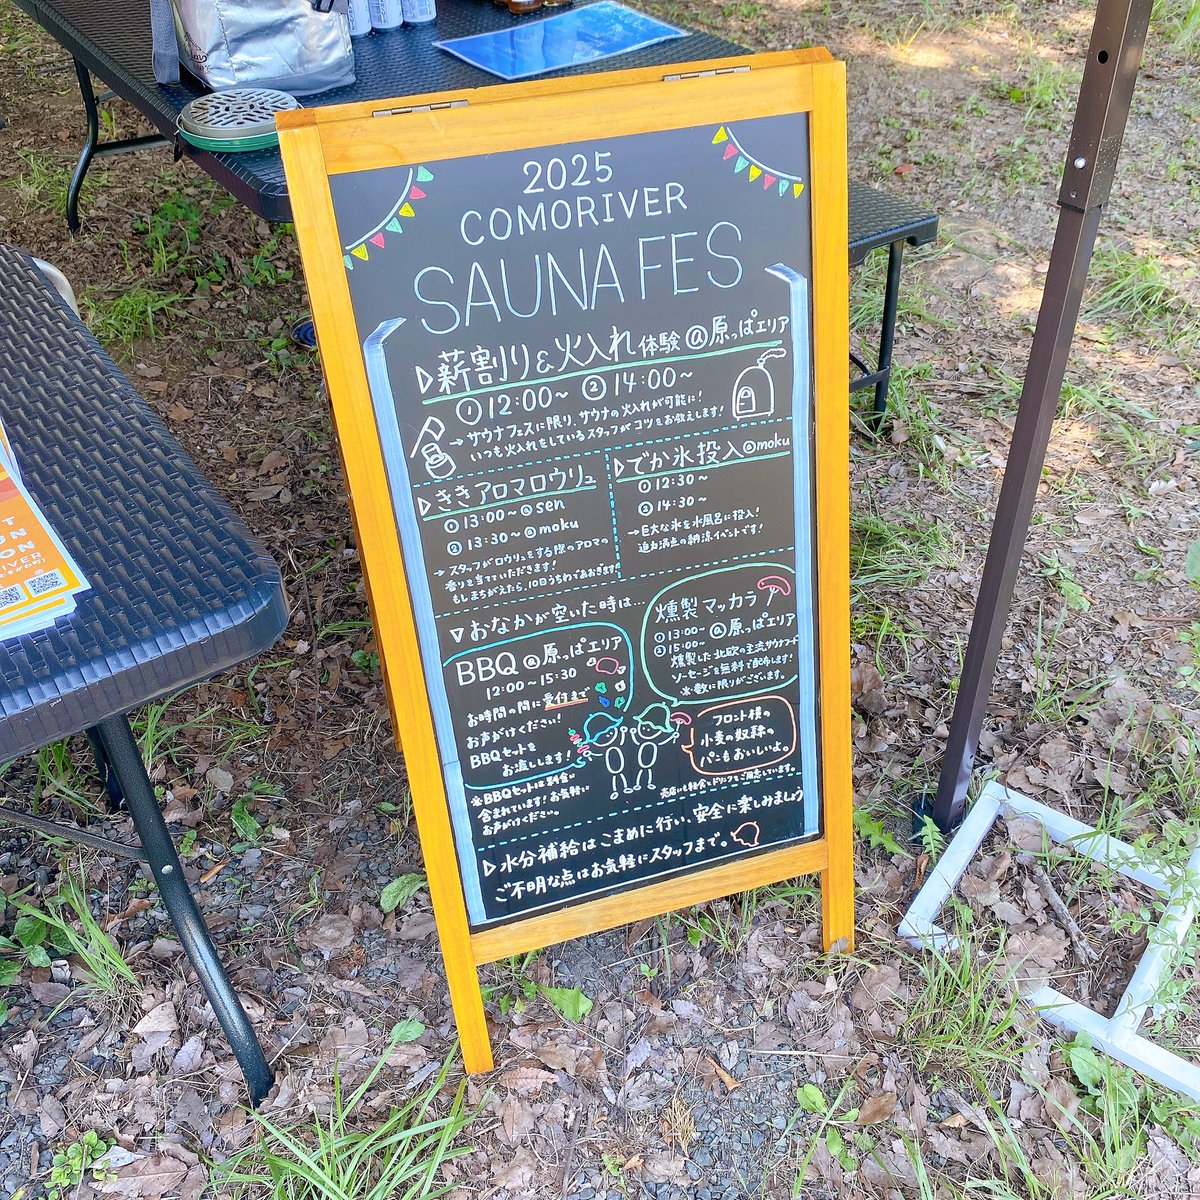 2025
COMORIVER
SAUNA FES
▷薪割り&火入れ体験@原っぱエリア
①12:00~ ②14:00~
→サウナフェスに限り、サウナの火入れが可能に!
いつも火入れをしているスタッフがコツをお教えします!
▷ききアロマロウリュ
①13:00~@sen
②13:30~@moku
→スタッフがロウリュをする際のアロマの
香りを当ていただきます!
もしまちがえたら、10回うちわであおぎます!
▷でか氷投入@moku
①12:30~
②14:30~
→巨大な氷を水風呂に投入!
迫力満点の納涼イベントです!
▽おなかが空いた時は...
BBQ@原っぱエリア
12:00~15:30
お時間の間に受付まで
お声がけください!
BBQセットを
お渡しします!
※BBQセットは料金に
含まれています!お気軽に
お声がけください。
燻製マッカラ
①13:00~
②15:00~
@原っぱエリア
燻製した北欧の主流サウナフード
ソーセージを無料で配布します!
※数に限りがございます。
フロント横の
小麦の奴隷の
パンもおいしいよ。
売店にも軽食とドリンクをご用意しています。
▷水分補給はこまめに行い、安全に楽しみましょう
ご不明な点はお気軽にスタッフまで。